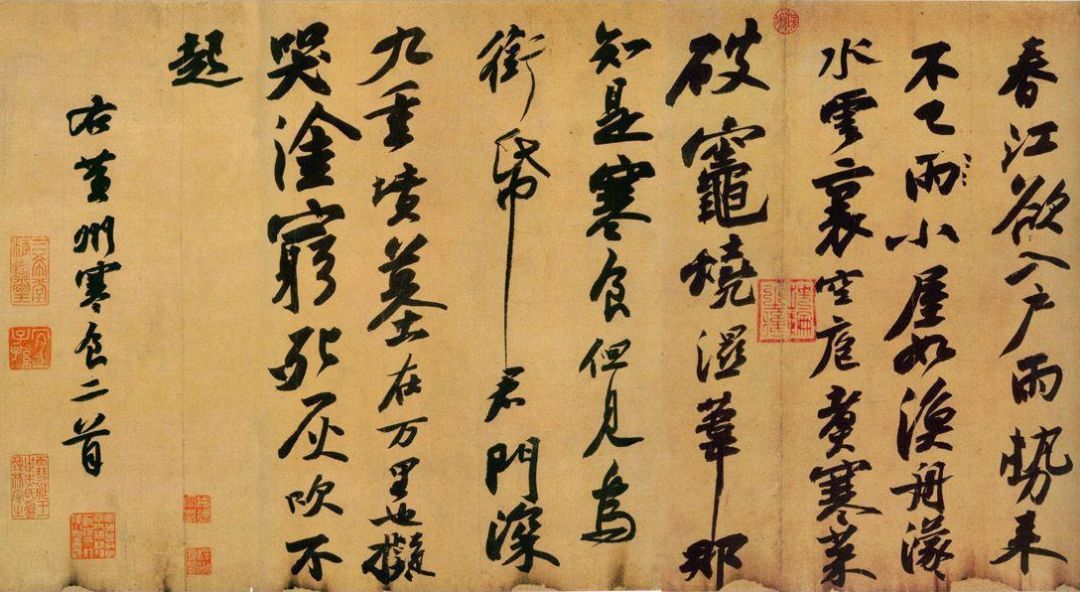 春江欲入戶雨勢來
不已雨小屋如漁舟濛
水雲裏空庖煮寒菜
破竈燒濕葦那
知是寒食但見烏
銜帋君門深
九重墳墓在万里也擬
哭塗窮死灰吹不
起
右黃州寒食二首
三希堂精鑑璽
宜子孫